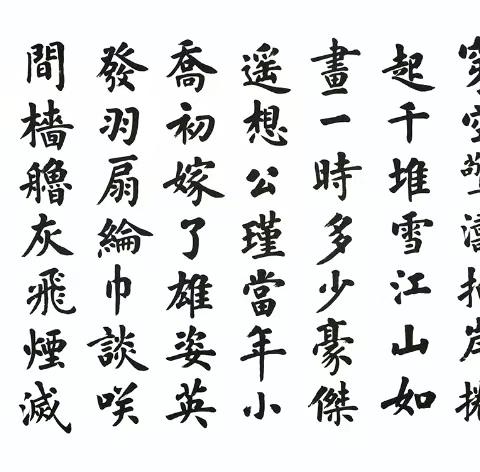 穿空驚濤拍岸捲
起千堆雪江山如
畫一時多少豪傑
遥想公瑾當年小
喬初嫁了雄姿英
發羽扇綸巾談咲
間檣艪灰飛煙滅